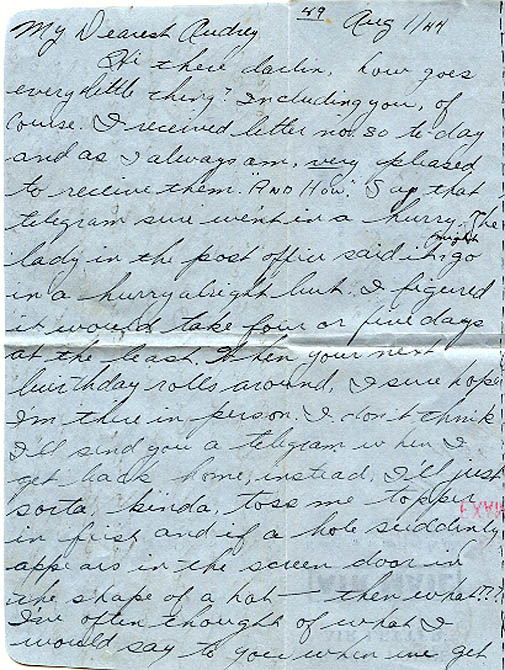 89 Aug 1/44
My Dearest Audrey
Hi there darlin, how goes
every little thing? Including you, of
course. I received letter no. 50 to-day
and as I always am, very pleased
to receive them. "AND HOW." Say that
telegram sure went in a hurry. The
lady in the post office said it might go
in a hurry alright but I figured
it would take four or five days
at the least. When your next
birthday rolls around, I sure hope
I'm there in person. I don't think
I'll send you a telegram when I
get back home, instead, I'll just
sorta, kinda, toss me topper
in first and if a hole suddenly
appears in the screen door in
the shape of a hat — then what???
I've often thought of what I
would say to you when we get